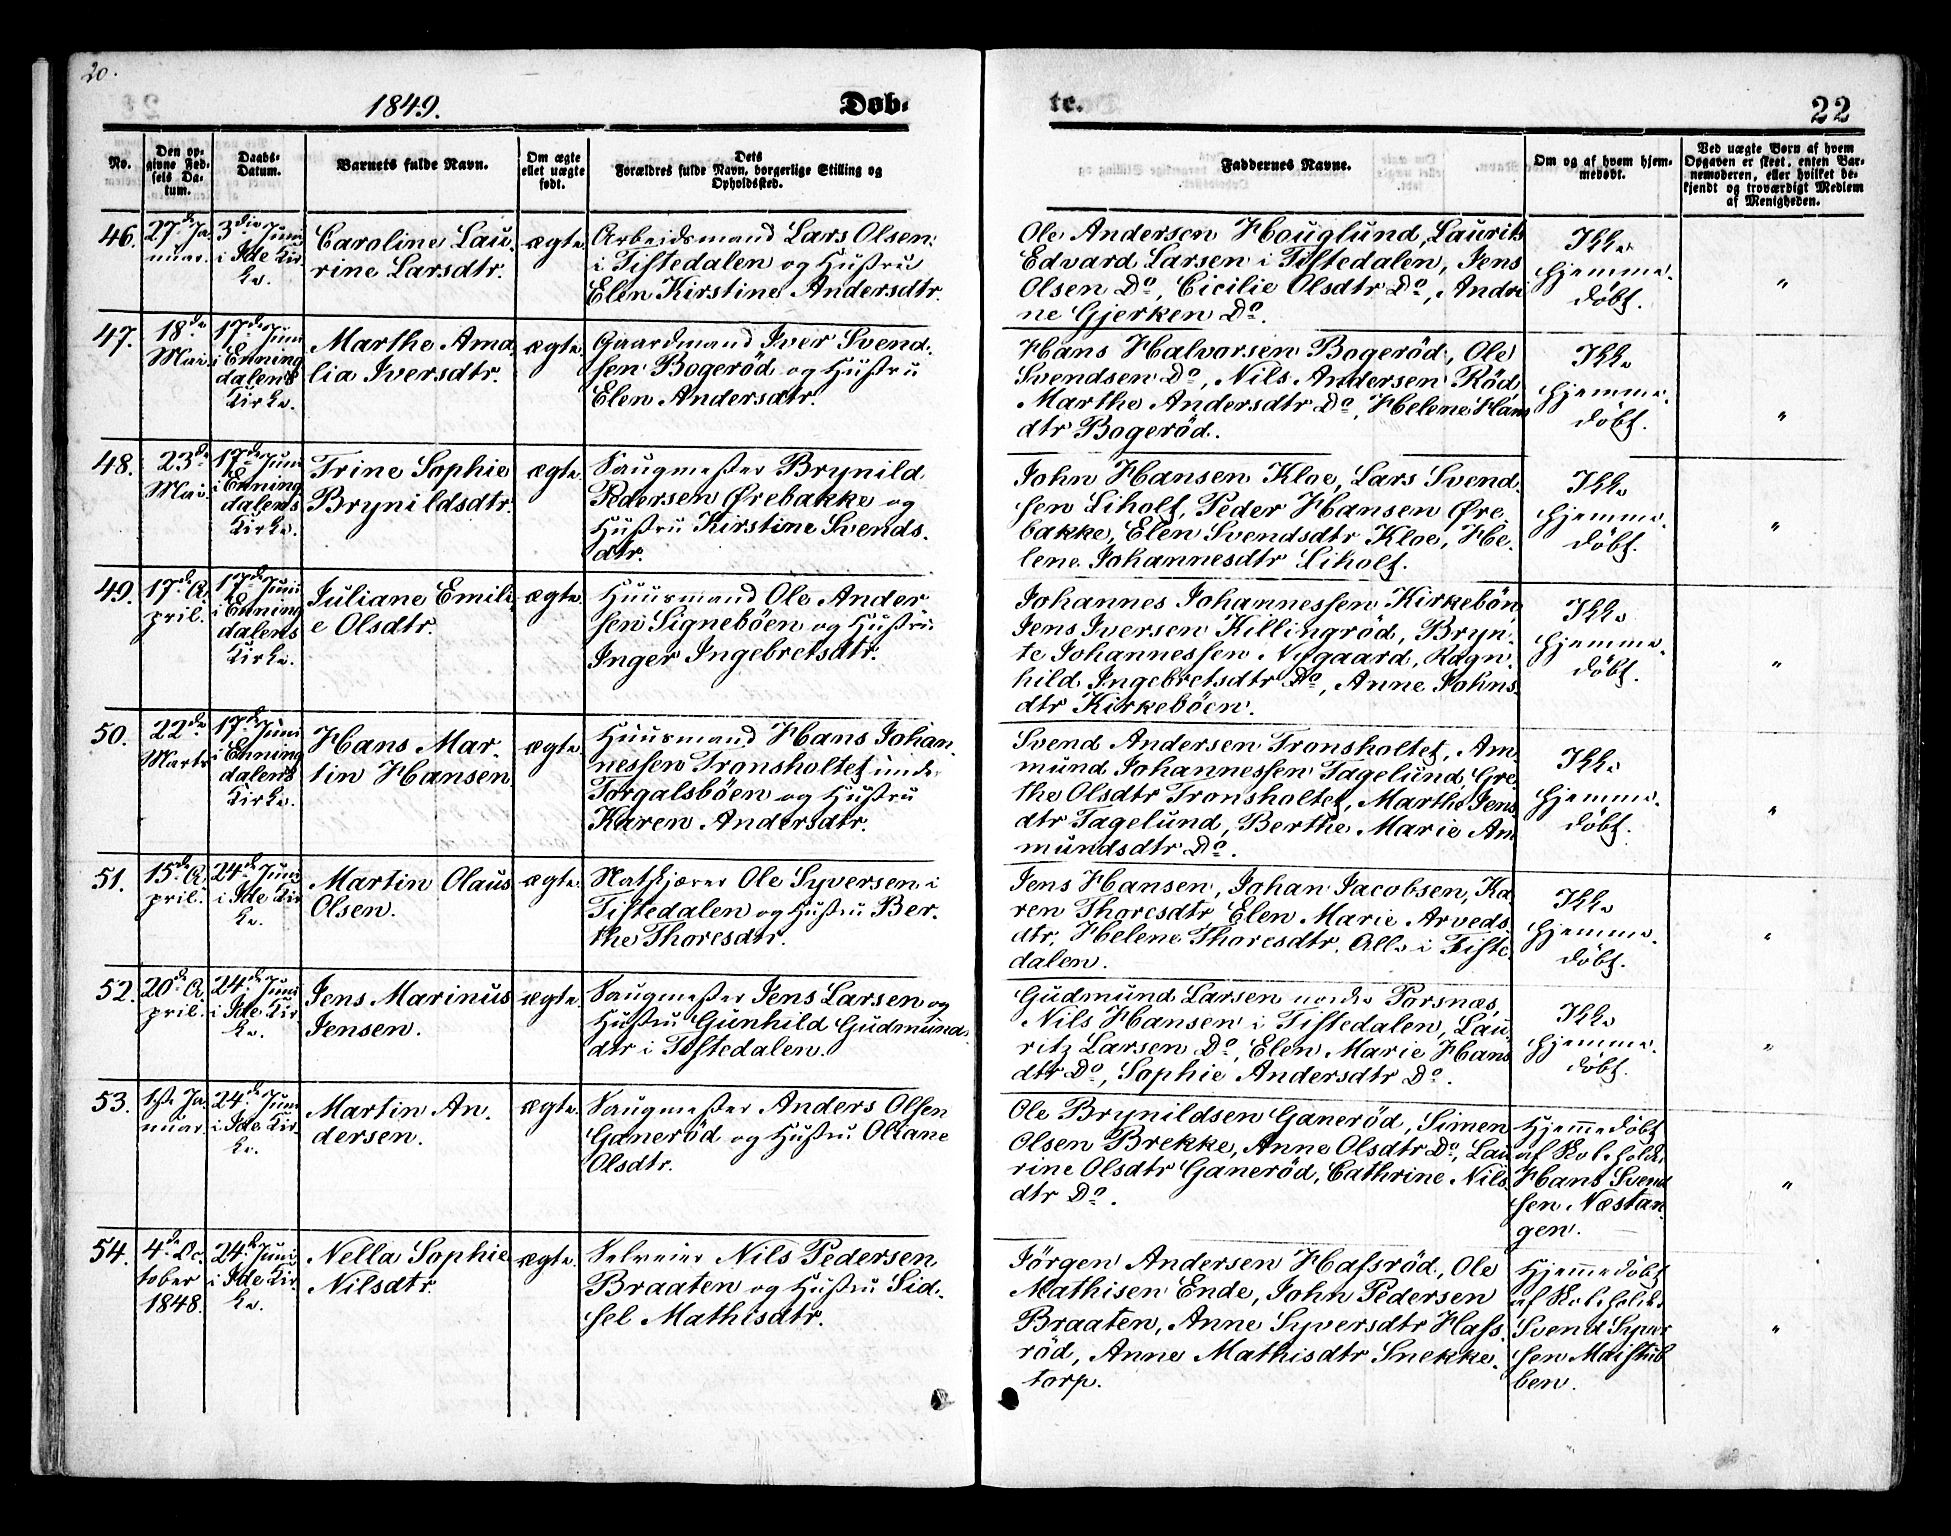 20.
1849.
Døb-
te.
22
No.
Den op-
givne Fød-
sels Da-
tum.
Daabs-
Datum.
Barnets fulde Navn.
Om ægte
ellet uægte
født.
Dets
Forældres fulde Navn, borgerlige Stilling og
Opholdssted.
Faddernes Navne.
Om og af hvem hjem-
medøbt.
Ved uægte Børn af hvem
Opgaven er skeet, enten Bar-
nemoderen, eller hvilket be-
kjendt og troværdigt Medlem
af Menigheden.
46.
27de Ja-
nuar.
3die Juni
i Ide Kir-
ke.
Caroline Lau-
rine Larsdtr.
ægte.
Arbeidsmand Lars Olsen
i Tistedalen og Hustru
Elen Kirstine Andersdtr.
Ole Andersen Houglund, Laurits
Edvard Larsen i Tistedalen, Jens
Olsen Do, Cicilie Olsdtr Do, Andri-
ne Gjerken Do.
Ikke
hjemme-
døbt.
"
47.
18de
Mai.
17de Juni
i Enning
dalens
Kirke.
Marthe Ama
lia Iversdtr.
ægte.
Gaardmand Iver Svend-
sen Bogerød og Hustru
Elen Andersdtr.
Hans Halvorsen Bogerød, Ole
Svendsen Do, Nils Andersen Rød
Marthe Andersdtr Do, Helene Hans
dtr Bogerød.
Ikke
hjemme-
døbt.
"
48.
23de
Mai.
17de Juni
i Enning
dalens
Kirke.
Trine Sophie
Brynildsdtr.
ægte.
Saugmester Brynild
Pedersen Ørebakke og
Hustru Kirstine Svends-
dtr.
John Hansen Kloe, Lars Svend-
sen Liholt, Peder Hansen Øre-
bakke, Elen Svendsdtr Kloe, He-
lene Johannesdtr Liholt.
Ikke
hjemme-
døbt.
"
49.
17de A-
pril.
17de Juni
i Enning
dalens
Kirke.
Juliane Emili-
e Olsdtr.
ægte.
Huusmand Ole Ander
sen Signebøen og Hustru
Inger Ingebretsdtr.
Johannes Johannessen Kirkebøn,
Jens Iversen Killingrød, Bryn-
te Johannessen Nygaard, Ragn-
hild Ingebretsdtr Do, Anne Johns-
dtr Kirkebøen.
Ikke
hjemme-
døbt.
"
50.
22de
Marts
17de Juni
i Enning
dalens
Kirke.
Hans Mar-
tin Hansen
ægte.
Huusmand Hans Johan-
nessen Tronsholtet under
Torgalsbøen og Hustru
Karen Andersdtr.
Svend Andersen Tronsholtet, Am-
mund Johannessen Tagelund, Gre-
the Olsdtr Tronsholtet, Marthe Jens
dtr Tagelund, Berthe Marie Am
mundsdtr Do.
Ikke
hjemme-
døbt.
"
51.
15de A-
pril.
24de Juni
i Ide Kir-
ke.
Martin Olaus
Olsen.
ægte.
Natskjærer Ole Syversen i
Tistedalen og Hustru Ber-
the Thoresdtr.
Jens Hansen, Johan Jacobsen, Ka-
ren Thoresdtr, Elen Marie Arveds-
dtr, Helene Thoresdtr. Alle i Tiste-
dalen.
Ikke
hjemme-
døbt.
"
52.
20de A-
pril.
24de Juni
i Ide Kir-
ke.
Jens Marinus
Jensen.
ægte.
Saugmester Jens Larsen og
Hustru Gunhild Gudmunds-
dtr i Tistedalen.
Gudmund Larsen nordre Porsnæs,
Nils Hansen i Tistedalen, Lau-
ritz Larsen Do, Elen Marie Hans
dtr Do, Sophie Andersdtr Do.
Ikke
hjemme-
døbt.
"
53.
1ste Ja-
nuar.
24de Juni
i Ide Kir-
ke.
Martin An-
dersen.
ægte.
Saugmester Anders Olsen
Ganerød og Hustru Oliane
Olsdtr.
Ole Brynildsen Ganerød, Simen
Olsen Brekke, Anne Olsdtr Do, Lau
rine Olsdtr Ganerød, Cathrine Nils
dtr Do.
Hjemmedøbt
af Skoleholder
Hans Svend
sen Næstan-
gen.
"
54.
4de Oc-
tober
1848.
24de Juni
i Ide Kir-
ke.
Nella Sophie
Nilsdtr.
ægte.
Selveier Nils Pedersen
Braaten og Hustru Sid-
sel Mathisdtr.
Jørgen Andersen Hafsrød, Ole
Mathisen Ende, John Pedersen
Braaten, Anne Syversdtr Hafs-
rød, Anne Mathisdtr Snekke-
torp.
Hjemmedøbt
af Skoleholder
Svend Syver
sen Maistub
ben.
"